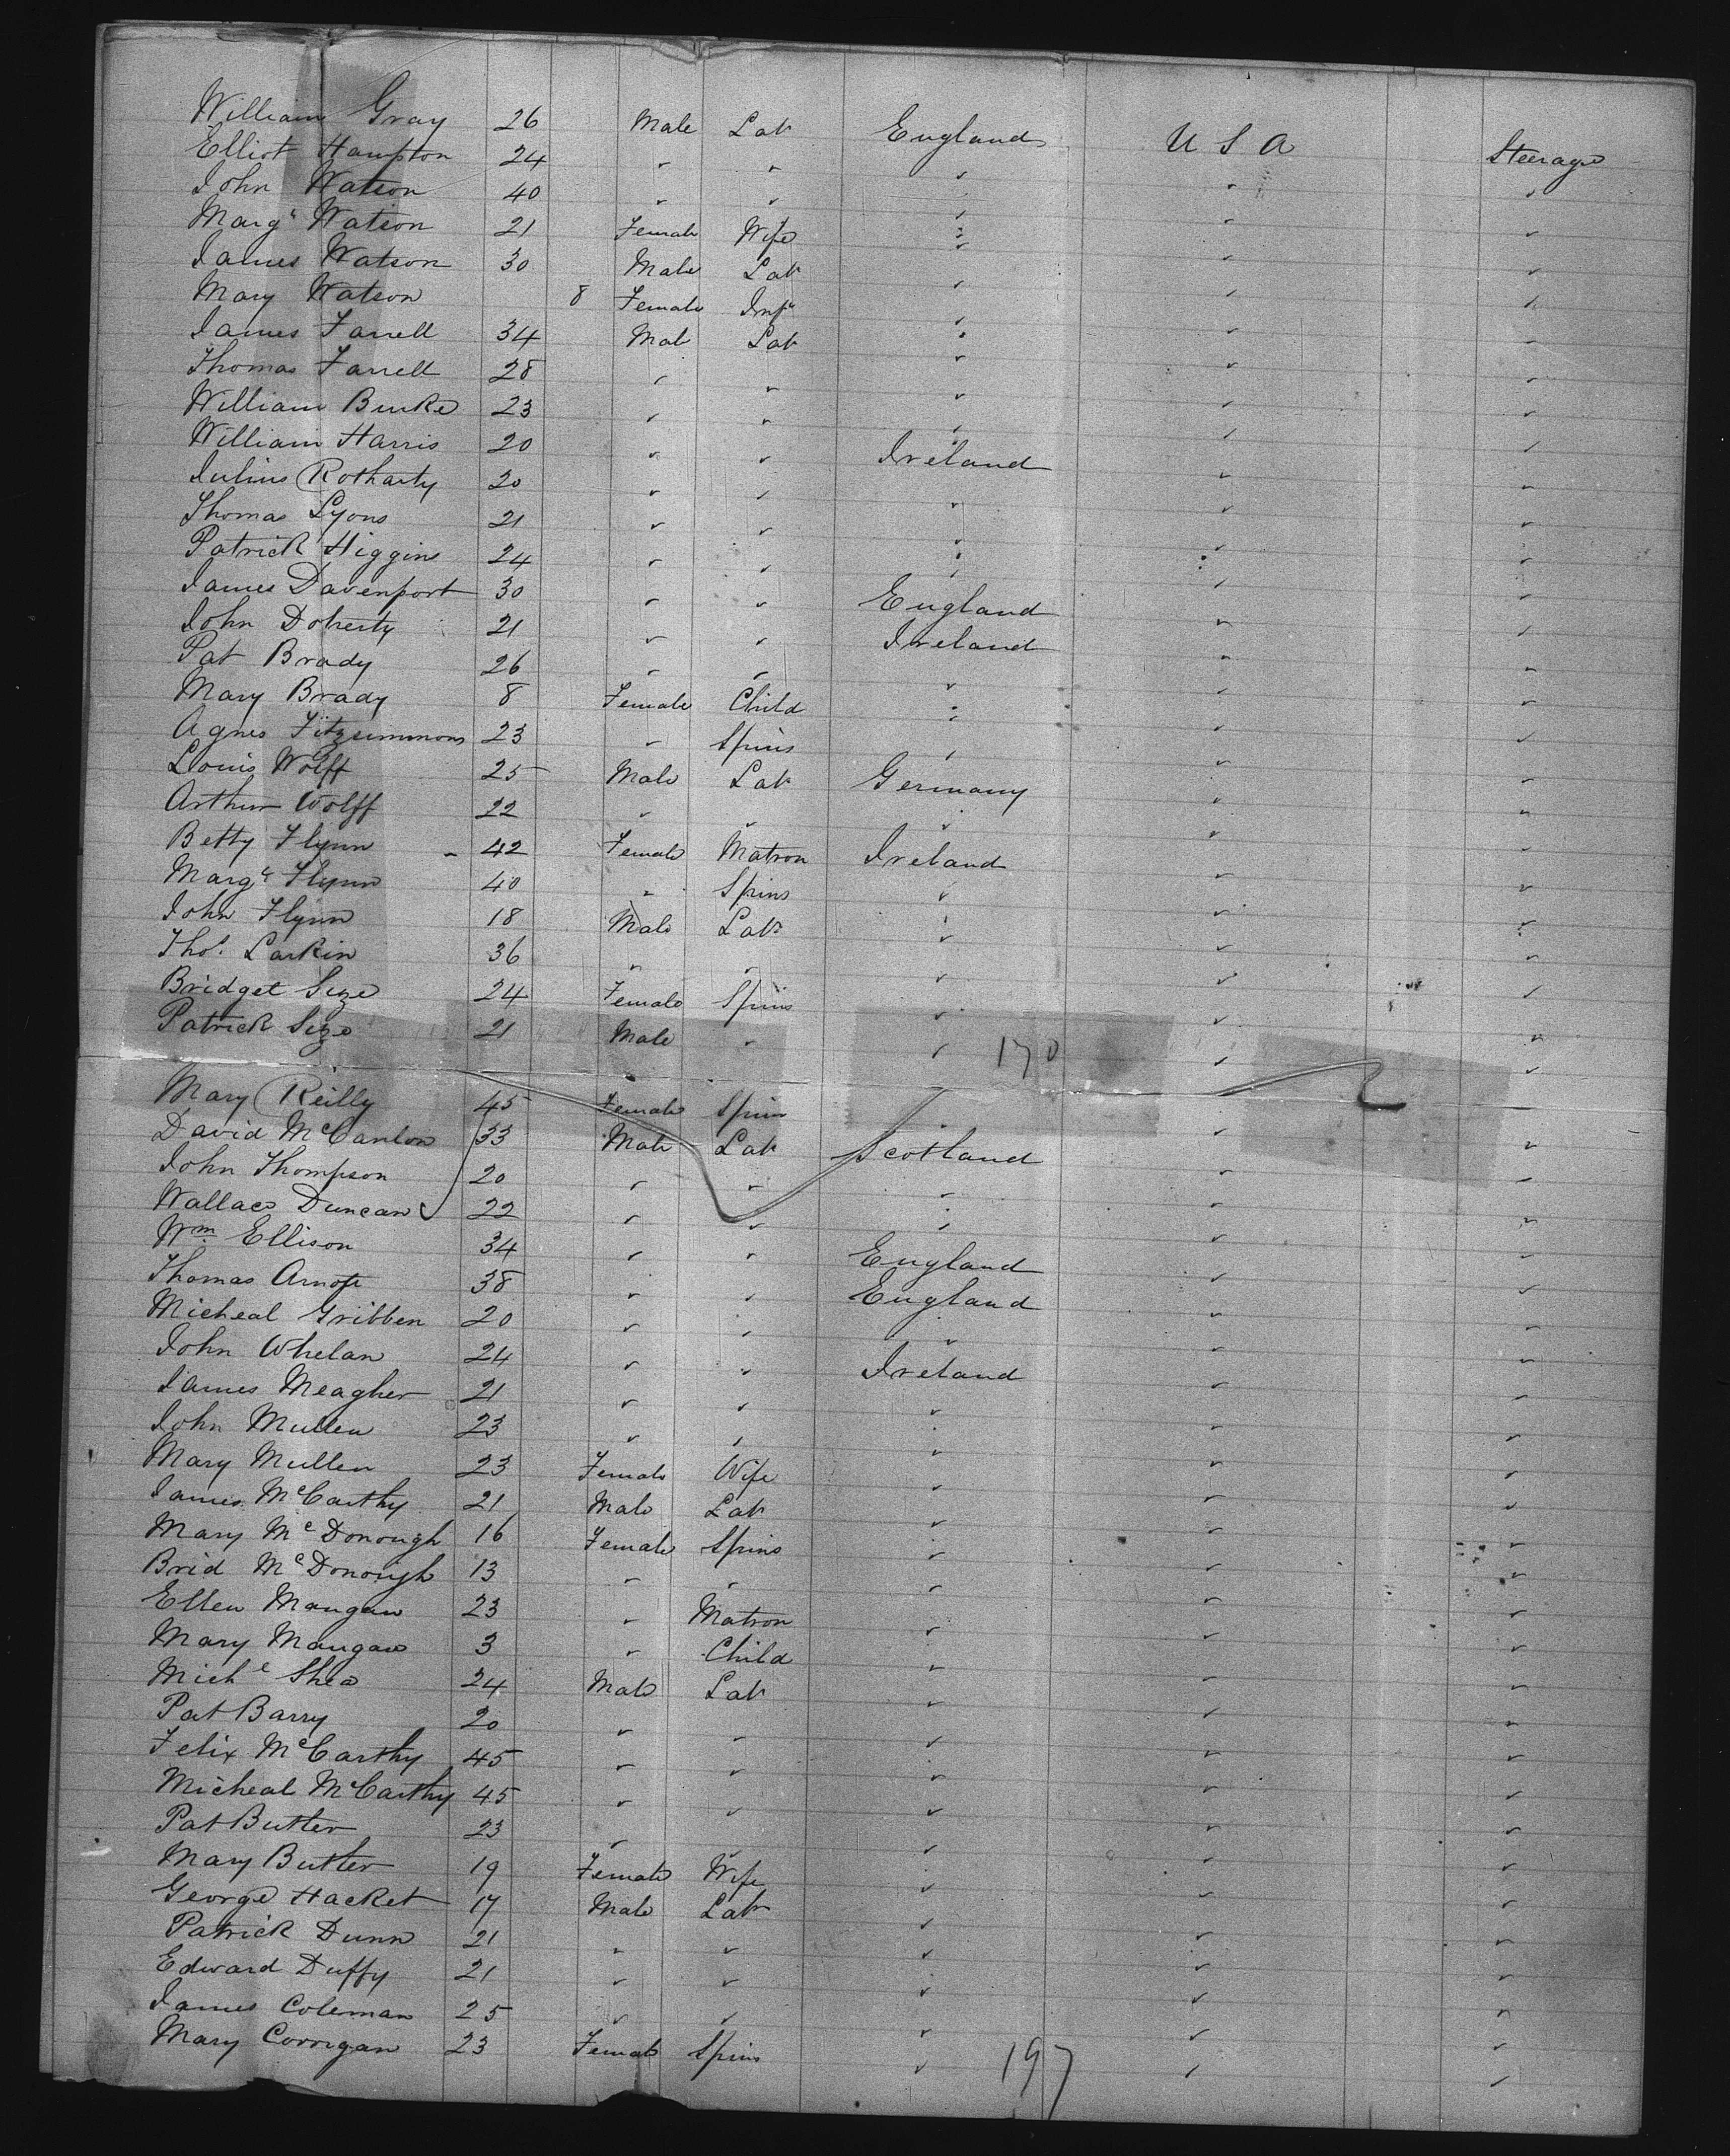 William Gray 26 Male Lab England U S A Steerage
Elliot Hampton 24 " " " " "
John Watson 40 " " " " "
Margt Watson 21 Female Wife " " "
James Watson 30 Male Lab " " "
Mary Watson 8 Female Inft " " "
James Farrell 34 Male Lab " " "
Thomas Farrell 28 " " " " "
William Burke 23 " " " " "
William Harris 20 " " Ireland " "
Julius Rotharty 20 " " " " "
Thomas Lyons 21 " " " " "
Patrick Higgins 24 " " " " "
James Davenport 30 " " England " "
John Doherty 21 " " Ireland " "
Pat Brady 26 " " " " "
Mary Brady 8 Female Child " " "
Agnes Fitzsimmons 23 " Spins " " "
Louis Wolff 25 Male Lab Germany " "
Arthur Wolff 22 " " " " "
Betty Flynn 42 Female Matron Ireland " "
Margt Flynn 40 " Spins " " "
John Flynn 18 Male Lab " " "
Thos. Larkin 36 " " " " "
Bridget Size 24 Female Spins " " "
Patrick Size 21 Male " " 170 " "
Mary Reilly 45 Female Spins " "
David McCanlon 33 Male Lab Scotland " "
John Thompson 20 " " " " "
Wallace Duncan 22 " " " " "
Wm Ellison 34 " " England " "
Thomas 38 " " England " "
Micheal Gribben 20 " " " " "
John Whelan 24 " " Ireland " "
James Meagher 21 " " " " "
John Mullen 23 " " " " "
Mary Mullen 23 Female Wife " " "
James McCarthy 21 Male Lab " " "
Mary McDonough 16 Female Spins " " "
Brid McDonough 13 " " " " "
Ellen Mangan 23 " Matron " " "
Mary Mangan 3 " Child " " "
Michl Shea 24 Male Lab " " "
Pat Barry 20 " " " " "
Felix McCarthy 45 " " " " "
Micheal McCarthy 45 " " " " "
Pat Butler 23 " " " " "
Mary Butler 19 Female Wife " " "
George Hacket 17 Male Lab " " "
Patrick Dunn 21 " " " " "
Edward Duffy 21 " " " " "
James Coleman 25 " " " " "
Mary Corrigan 23 Female Spins " 197 " "